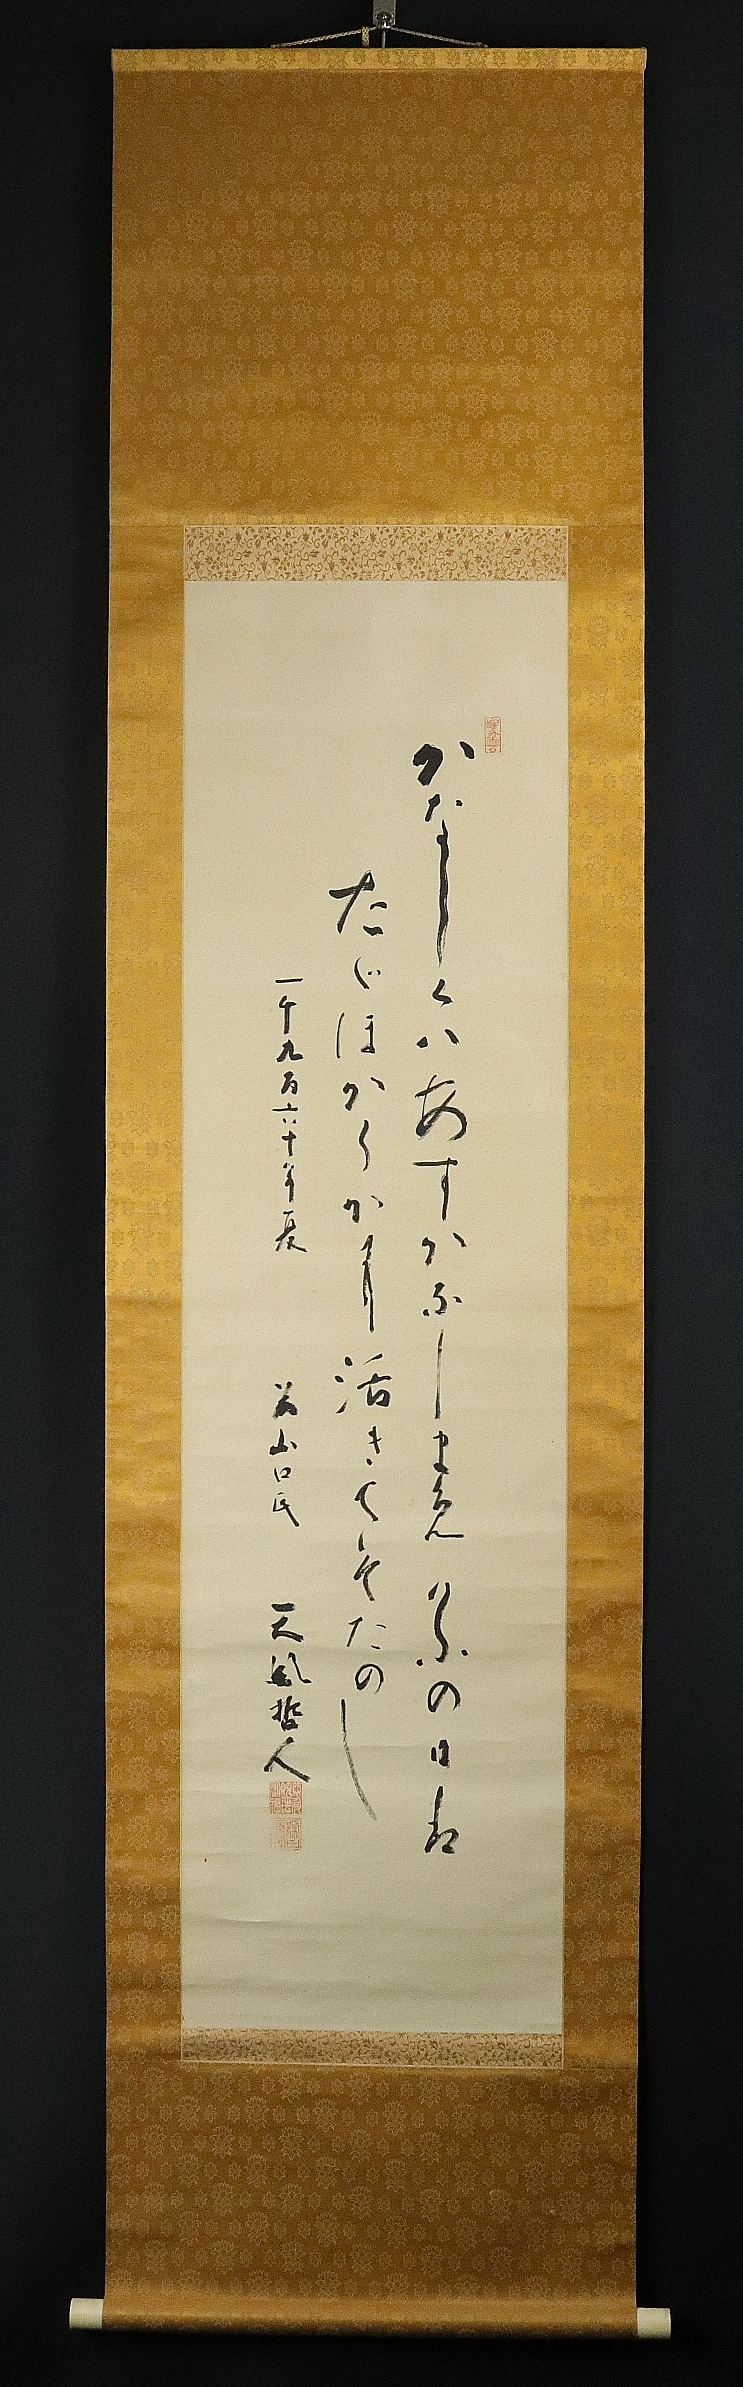 かなしくハあすかなしまむけふの日を
たゞほからかに活きてぞたのし
一千九百六十年夏
為山口氏
天風哲人